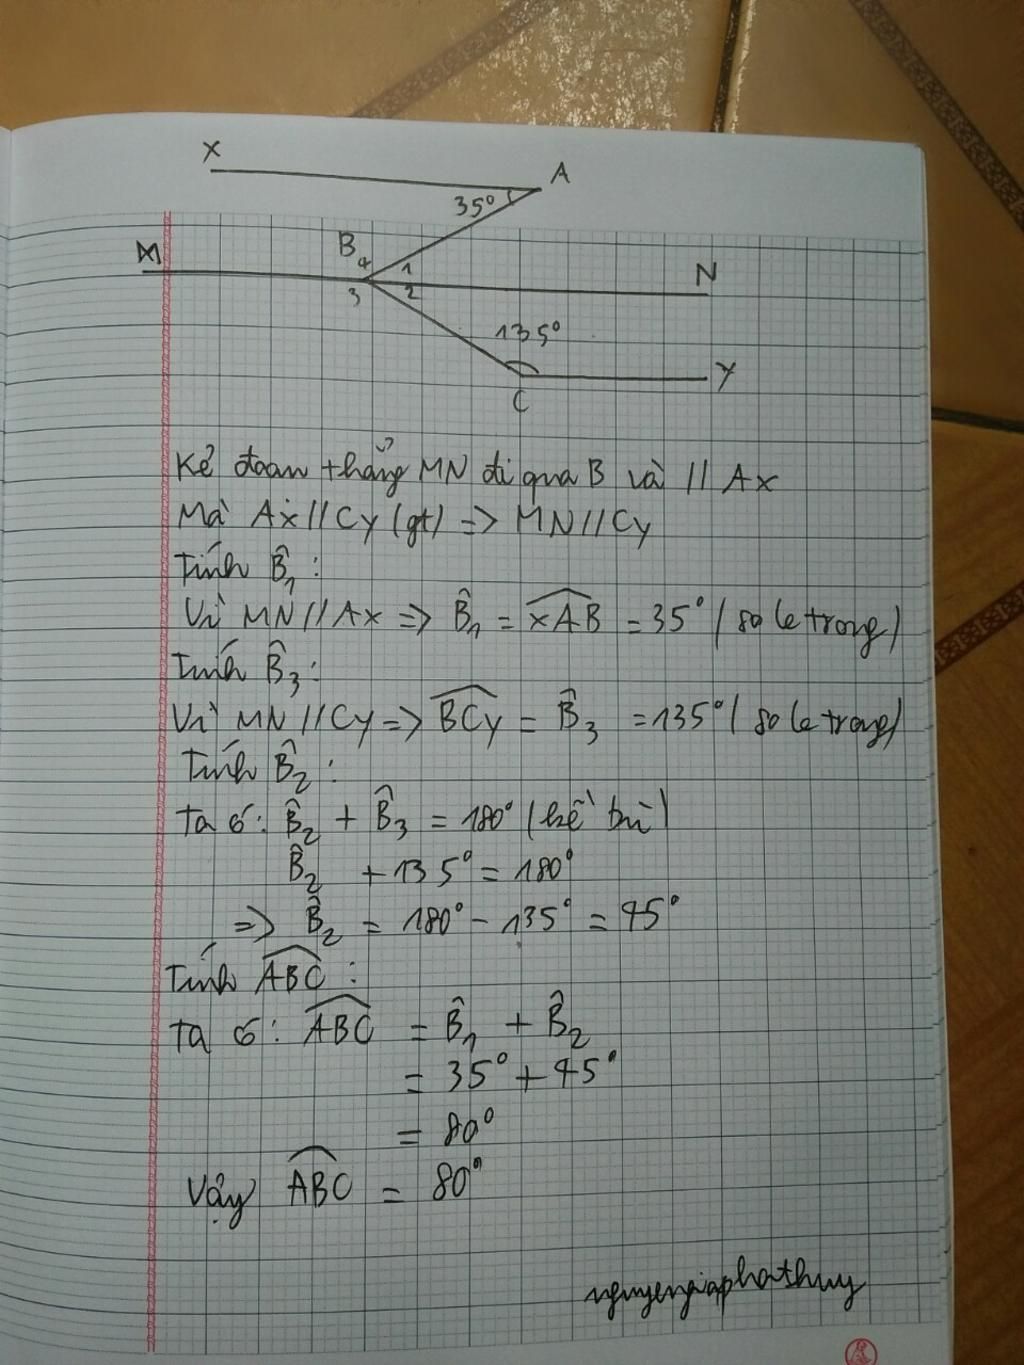 x
A
35°
M
B
4
1
N
3
2
135°
y
C
Kẻ đoạn thẳng MN đi qua B và // Ax
Mà Ax // Cy (gt) => MN // Cy
Tính B̂₁ :
Vì MN // Ax => B̂₁ = xAB = 35° (so le trong)
Tính B̂₃ :
Vì MN // Cy => BCy = B̂₃ = 135° (so le trong)
Tính B̂₂ :
Ta có: B̂₂ + B̂₃ = 180° (kề bù)
B̂₂ + 135° = 180°
=> B̂₂ = 180° - 135° = 45°
Tính ABC :
Ta có: ABC = B̂₁ + B̂₂
= 35° + 45°
= 80°
Vậy ABC = 80°
nguyengiaphathuy